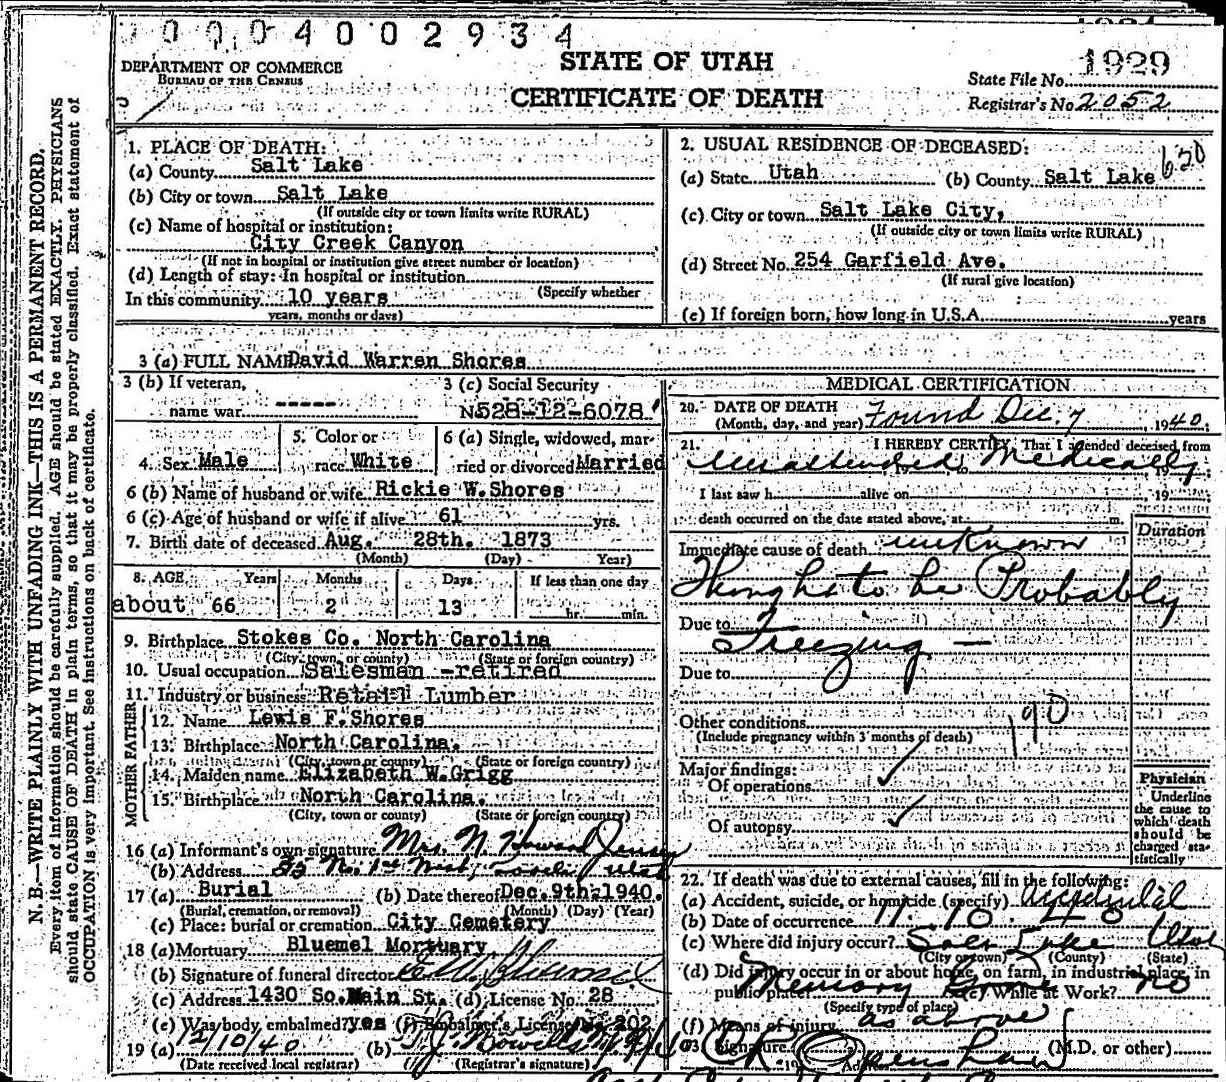 0 0 0 4 0 0 2 9 3 4
DEPARTMENT OF COMMERCE
BUREAU OF THE CENSUS
STATE OF UTAH
CERTIFICATE OF DEATH
1929
State File No.
Registrar's No. 2052
N. B.—WRITE PLAINLY WITH UNFADING INK—THIS IS A PERMANENT RECORD.
Every item of information should be carefully supplied. AGE should be stated EXACTLY. PHYSICIANS
should state CAUSE OF DEATH in plain terms, so that it may be properly classified. Exact statement of
OCCUPATION is very important. See instructions on back of certificate.
1. PLACE OF DEATH:
(a) County Salt Lake
(b) City or town Salt Lake
(If outside city or town limits write RURAL)
(c) Name of hospital or institution:
City Creek Canyon
(If not in hospital or institution give street number or location)
(d) Length of stay: In hospital or institution
(Specify whether
In this community 10 years
years, months or days)
2. USUAL RESIDENCE OF DECEASED:
(a) State Utah (b) County Salt Lake
(c) City or town Salt Lake City,
(If outside city or town limits write RURAL)
(d) Street No. 254 Garfield Ave.
(If rural give location)
(e) If foreign born, how long in U.S.A. years
3 (a) FULL NAME David Warren Shores
3 (b) If veteran,
name war -----
3 (c) Social Security
No 528-12-6078
4. Sex Male
5. Color or
race White
6 (a) Single, widowed, mar-
ried or divorced Married
6 (b) Name of husband or wife Rickie W. Shores
6 (c) Age of husband or wife if alive 61 yrs.
7. Birth date of deceased Aug. 28th. 1873
(Month) (Day) Year)
8. AGE Years Months Days If less than one day
about 66 2 13 hr. min.
9. Birthplace Stokes Co. North Carolina
(City, town, or county) (State or foreign country)
10. Usual occupation Salesman -retired
11. Industry or business Retail Lumber
FATHER
12. Name Lewis F. Shores
13. Birthplace North Carolina.
(City, town or county) (State or foreign country)
MOTHER
14. Maiden name Elizabeth W. Grigg
15. Birthplace North Carolina.
(City, town or county) (State or foreign country)
16 (a) Informant's own signature Mrs. N. Howard Jensen
(b) Address N. 1st West, Utah
17 (a) Burial (b) Date thereof Dec. 9th. 1940.
(Burial, cremation, or removal) (Month) (Day) (Year)
(c) Place: burial or cremation City Cemetery
18 (a) Mortuary Bluemel Mortuary
(b) Signature of funeral director
(c) Address 1430 So. Main St. (d) License No. 28
(e) Was body embalmed? yes (f) Embalmer's License No. 202
19 (a) 12/10/40 (b)
(Date received local registrar) (Registrar's signature)
MEDICAL CERTIFICATION
20. DATE OF DEATH
(Month, day, and year) Found Dec. 7, 1940.
21. I HEREBY CERTIFY, That I attended deceased from
Unattended Medically
I last saw h alive on 19
death occurred on the date stated above, at m.
Duration
Immediate cause of death unknown
Thought to be Probably
Due to Freezing —
Due to
Other conditions
(Include pregnancy within 3 months of death)
190
Major findings:
Of operations
Of autopsy
Physician
Underline
the cause to
which death
should be
charged sta-
tistically
22. If death was due to external causes, fill in the following:
(a) Accident, suicide, or homicide (specify) Accidental
(b) Date of occurrence 11. 10. 40
(c) Where did injury occur? Salt Lake Utah
(City or town) (County) (State)
(d) Did injury occur in or about home, on farm, in industrial place, in
public place? Memory Grove (e) While at Work? no
(Specify type of place)
(f) Means of injury as above
23. Signature (M.D. or other)